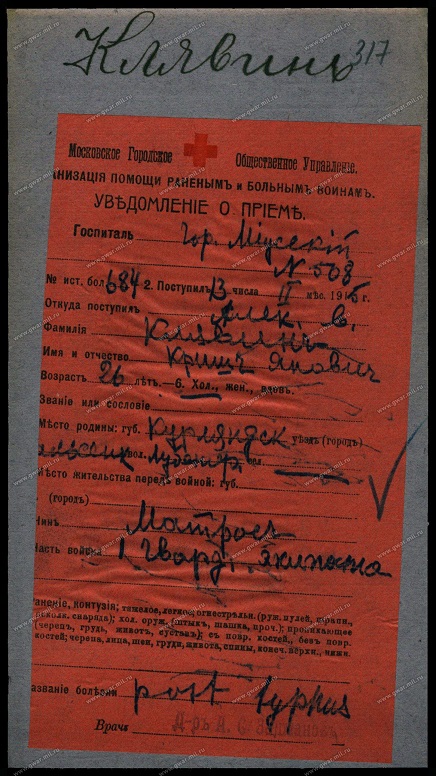 Клявинь 317
Московское Городское Общественное Управленіе.
АНИЗАЦІЯ ПОМОЩИ РАНЕНЫМЪ И БОЛЬНЫМЪ ВОИНАМЪ.
УВѢДОМЛЕНІЕ О ПРІЕМѢ.
Госпиталь Гор. Міусскій
N 568
№ ист. бол. 684 2. Поступилъ 13 числа II мѣс. 1915 г.
Откуда поступилъ Алек. в.
Фамилія Клявинь
Имя и отчество Кришъ Янович
Возрастъ 26 лѣтъ.—6. Хол., жен., вдовъ.
Званіе или сословіе
Мѣсто родины: губ. Курляндск уѣздъ (городъ)
вол. сел.
Мѣсто жительства передъ войной: губ.
(городъ)
Чинъ Матросъ
Часть войска 1. Гвард. Экипажа
Раненіе, контузія; тяжелое, легкое; огнестрѣльн. (руж. пулей, шрапн.,
осколк. снаряда); хол. оруж. (штыкъ, шашка, проч.); проникающее
(черепъ, грудь, животъ, суставъ); съ повр. костей, безъ повр.
костей; черепа, лица, шеи, груди, живота, спины, конеч. верхн., нижн.
азваніе болѣзни post typhus
Врачъ Д-ръ А. С.